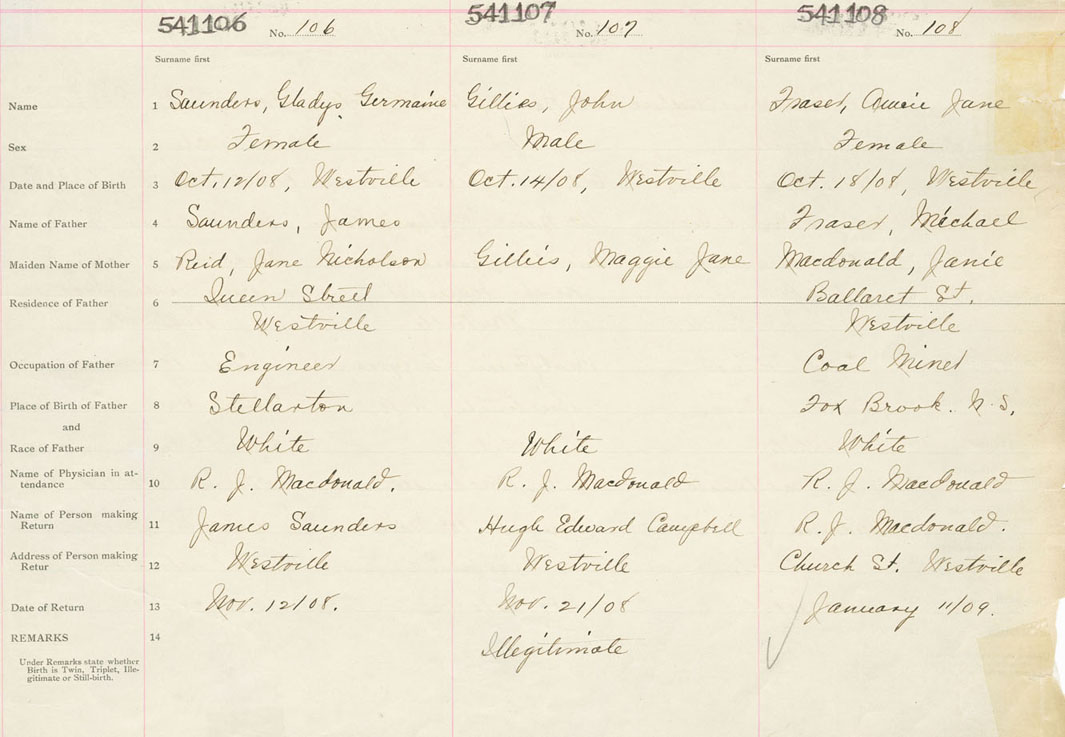 541106 541107 541108
No. 106 No. 107 No. 108
Surname first Surname first Surname first
Name 1 Saunders, Gladys Germaine Gillies, John Fraser, Annie Jane
Sex 2 Female Male Female
Date and Place of Birth 3 Oct. 12/08, Westville Oct. 14/08, Westville Oct. 18/08, Westville
Name of Father 4 Saunders, James Fraser, Michael
Maiden Name of Mother 5 Reid, Jane Nicholson Gillies, Maggie Jane Macdonald, Janie
Residence of Father 6 Queen Street Ballaret St.
Westville Westville
Occupation of Father 7 Engineer Coal Miner
Place of Birth of Father 8 Stellarton Fox Brook. N.S.
and
Race of Father 9 White White White
Name of Physician in at-
tendance 10 R. J. Macdonald. R. J. Macdonald R. J. Macdonald
Name of Person making
Return 11 James Saunders Hugh Edward Campbell R. J. Macdonald.
Address of Person making
Retur 12 Westville Westville Church St. Westville
Date of Return 13 Nov. 12/08. Nov. 21/08 January 11/09.
REMARKS 14 Illegitimate
Under Remarks state whether
Birth is Twin, Triplet, Ille-
gitimate or Still-birth.